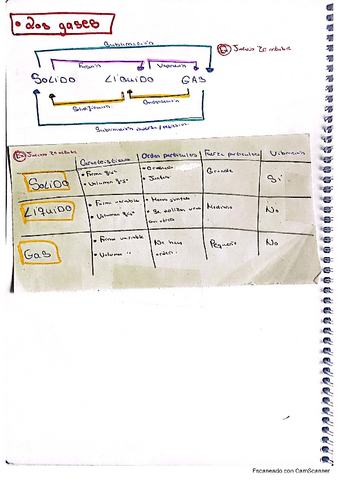 • Los gases
Sublimación
Jueves 20 octubre
Fusión Vaporización
SOLIDO LIQUIDO GAS
Solidificación Condensación
Sublimación inversa/
Jueves 20 octubre
Características Orden partículas Fuerza partículas Vibración
SOLIDO
• Forma fija
• Volumen fijo
• Ordenado
• Juntas
Grande
Si
LIQUIDO
• Forma variable
• Volumen fijo
• Menos juntas
• Se deslizan unas
con otras
Mediana
No
GAS
• Forma variable
• Volumen "
No hay
orden
Pequeña
No
Escaneado con CamScanner